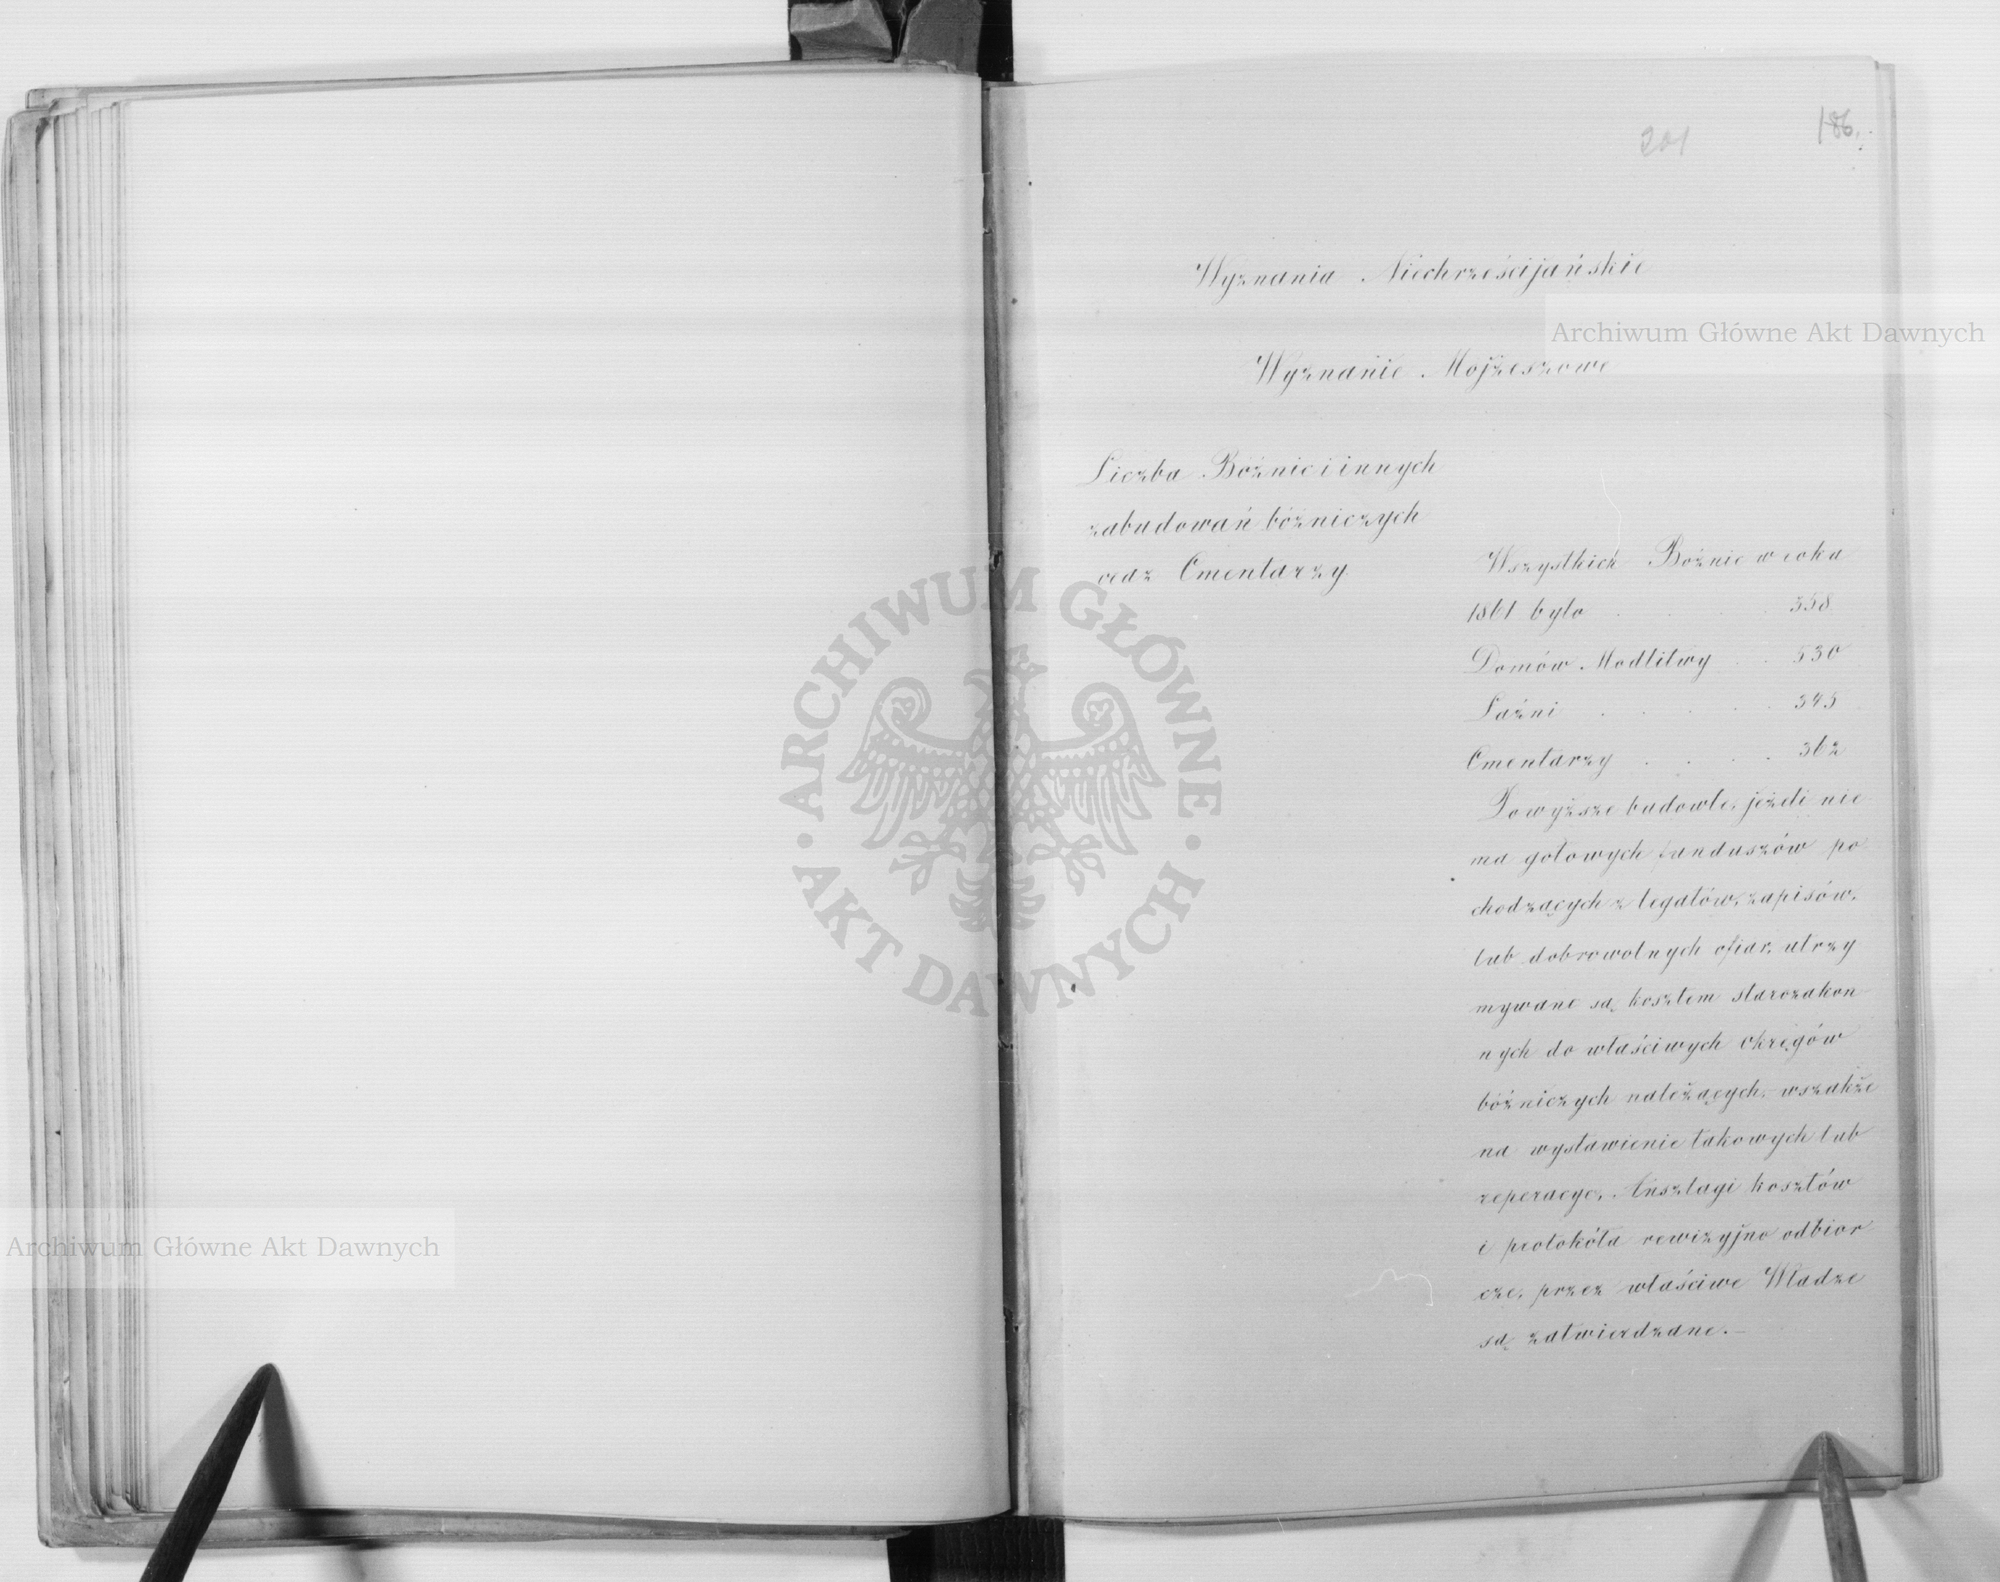 186.
201
Wyznania Niechrześcijańskie
Archiwum Główne Akt Dawnych
Wyznanie Mojżeszowe
Liczba Bóżnic i innych
zabudowań bóżniczych
oraz Cmentarzy
Wszystkich Bożnic w roku
1861 było . . . . 358
Domów Modlitwy . . 530
Łaźni . . . . . 345
Cmentarzy . . . . 362
Powyższe budowle, jeżeli nie
ma gotowych funduszów po
chodzących z legatów, zapisów,
lub dobrowolnych ofiar, utrzy
mywane są kosztem starozakon
nych do właściwych okręgów
bóżniczych należących, wszakże
na wystawienie takowych lub
reperacye, Anszlagi kosztów
i protokóła rewizyjno odbior
cze, przez właściwe Władze
są zatwierdzane. —
ARCHIWUM GŁÓWNE
AKT DAWNYCH
Archiwum Główne Akt Dawnych